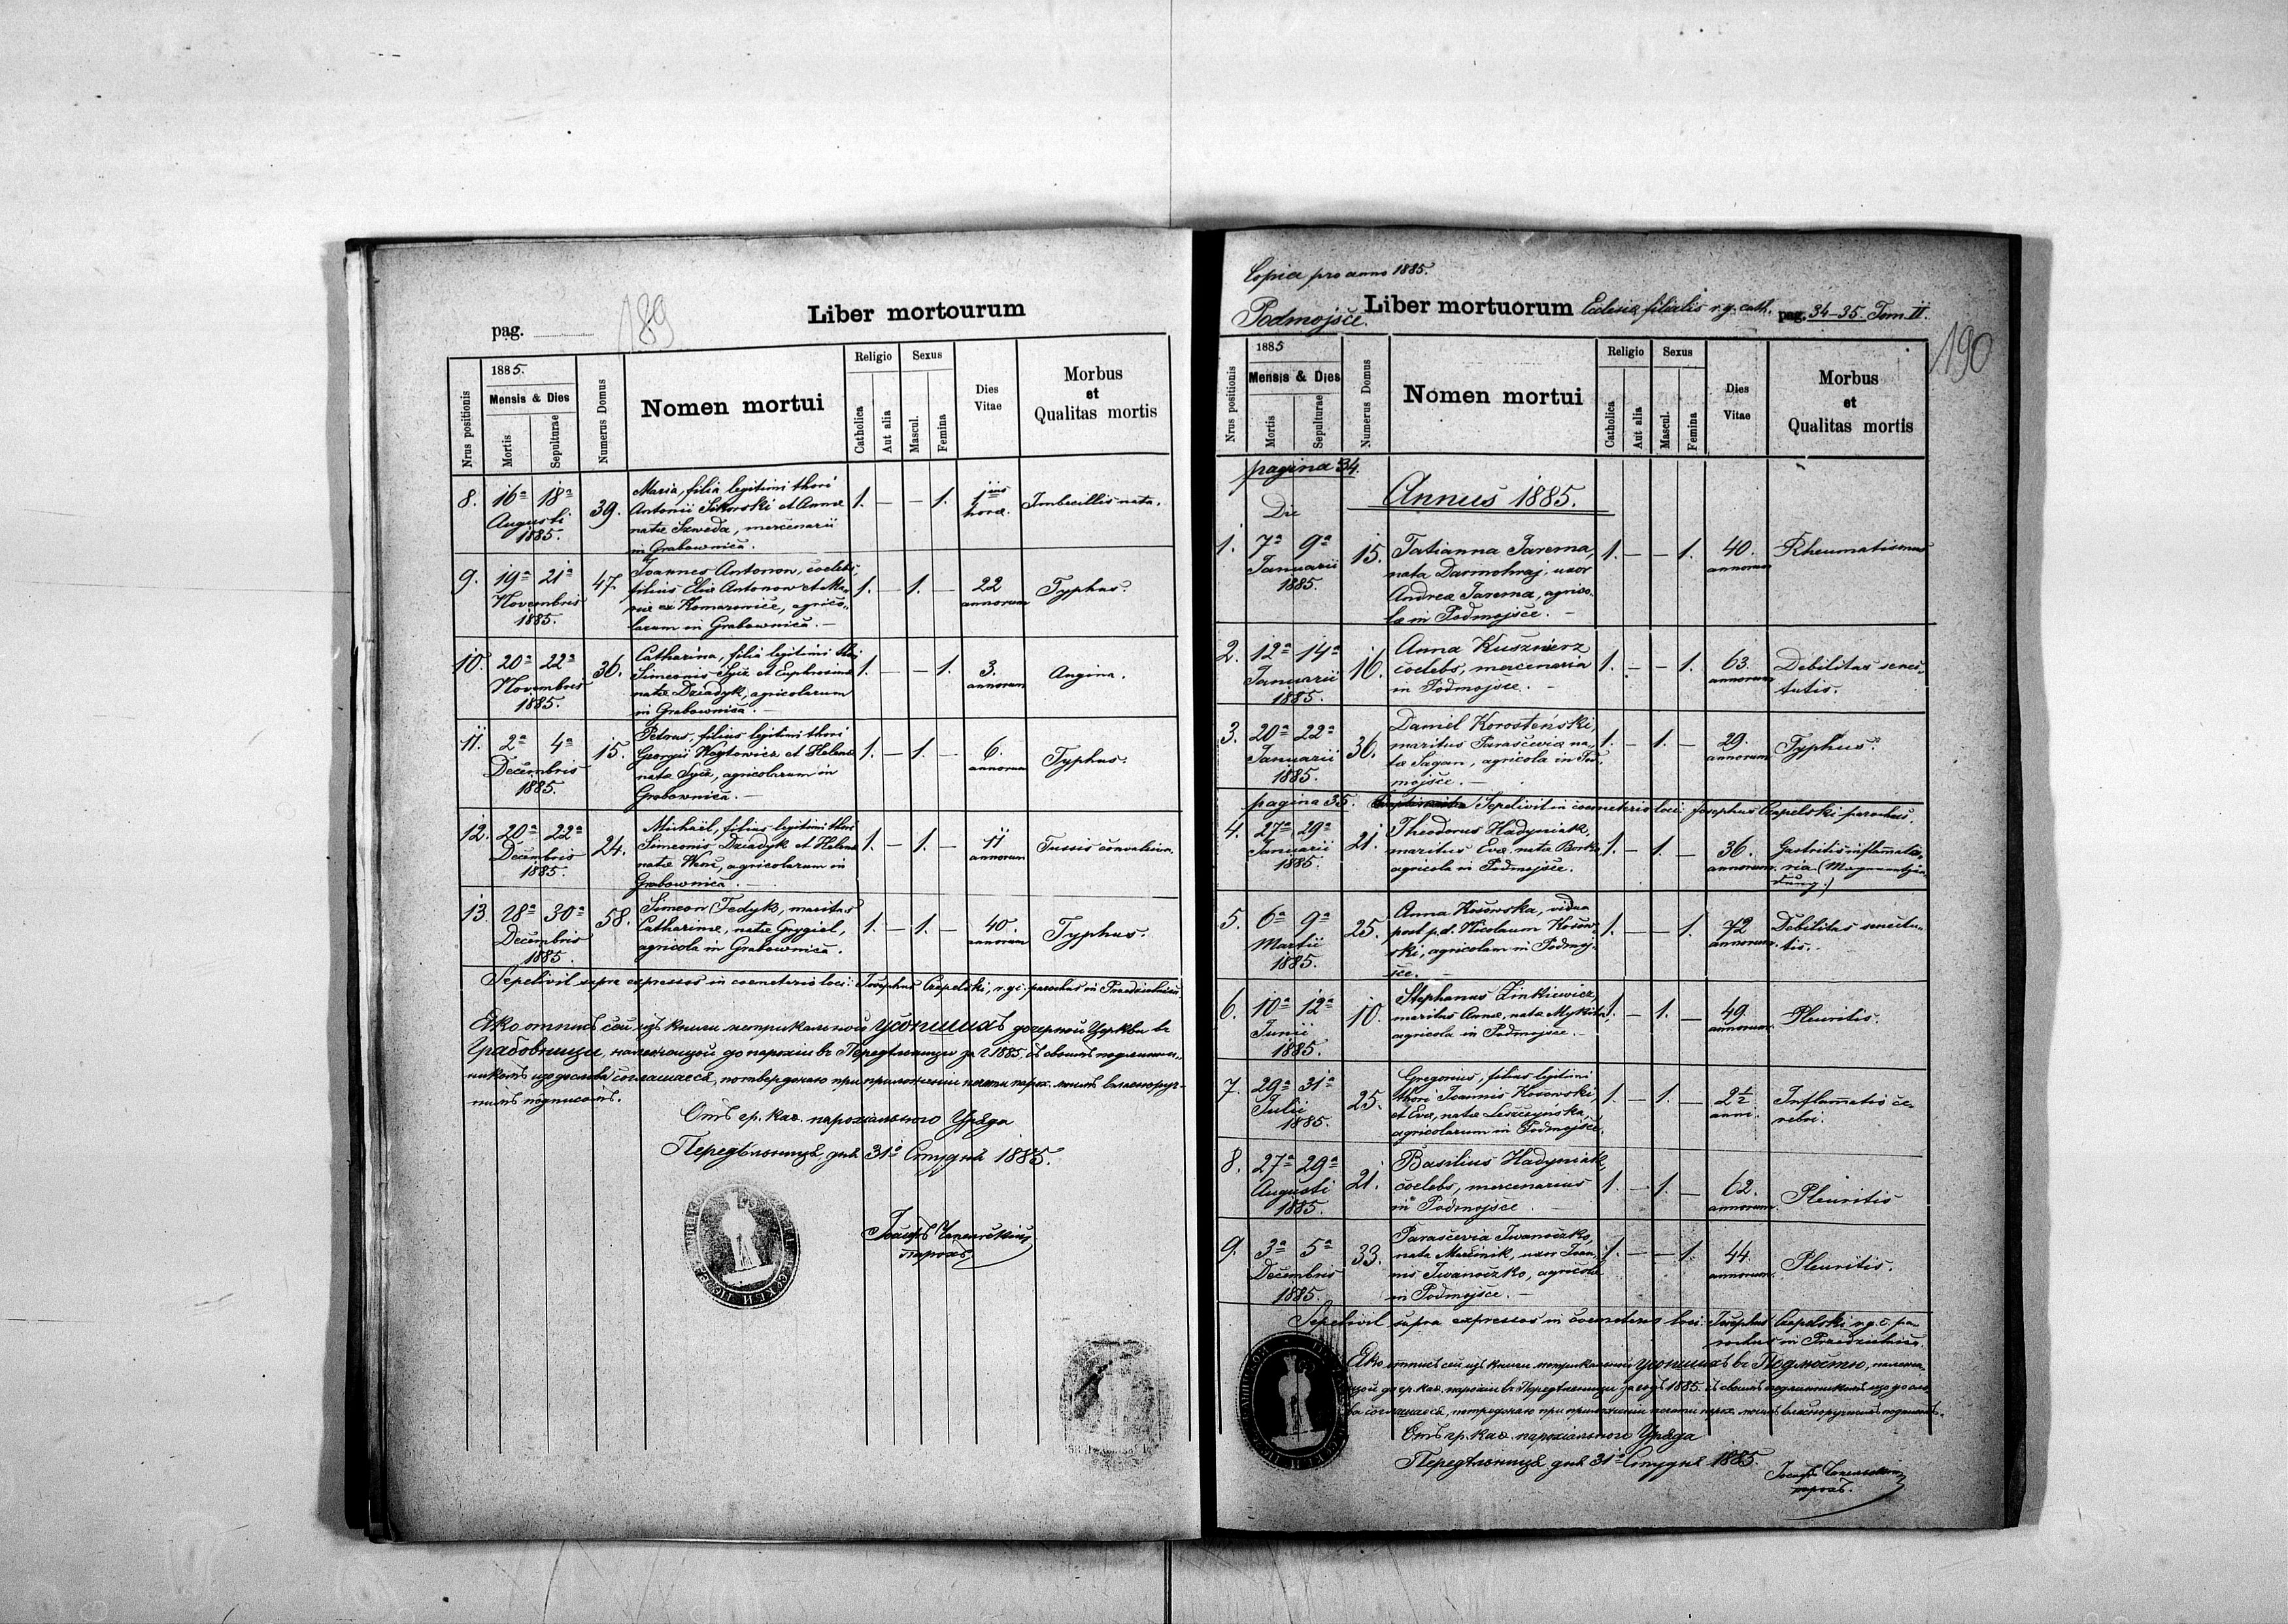 pag.
189
Liber mortourum
Nrus positionis
1885.
Mensis & Dies
Mortis
Sepulturae
Numerus Domus
Nomen mortui
Religio
Catholica
Aut alia
Sexus
Mascul.
Femina
Dies
Vitae
Morbus
et
Qualitas mortis
8. 16a 18a 39. Maria, filia legitimi thori 1. — — 1. Imbecillis nata.
Augusti Antonii Sikorski et Annae horae.
1885. natae Szweda, mercenarii
in Grabownica.
9. 19a 21a 47. Joannes Antonow, coelebs, 1. — 1. — 22 Typhus.
Novembris filius Eliae Antonow et Ma-
1885. riae ex Komarowicz, agrico- annorum
larum in Grabownica. —
10. 20a 22a 36. Catharina, filia legitimi thori 1. — — 1. 3. Angina.
Novembris Simeonis Sycz et Euphrosinae annorum
1885. natae Dziadyk, agricolarum
in Grabownica. —
11. 2a 4a 15. Petrus, filius legitimi thori 1. — 1. — 6. Typhus.
Decembris Georgii Wogtowicz et Helenae annorum
1885. natae Sycz, agricolarum in
Grabownica. —
12. 20a 22a 24. Michaël, filius legitimi thori 1. — 1. — 11 Tussis convulsiva.
Decembris Simeonis Dziadyk et Helenae annorum
1885. natae agricolarum in
Grabownica. —
13. 28a 30a 58. Simeon Fedyk, maritus 1. — 1. — 40. Typhus.
Decembris Catharinae, natae Grygiel, annorum
1885. agricola in Grabownica.
Sepelivit supra expressos in coemeterio loci: Josephus Czapelski, r.g.c. parochus in
Яко отписъ сей изъ книги метрикальной усопшихъ дочерной Церкви въ
Грабовници, належащой до парохіи въ Передѣльници за г. 1885. съ своимъ подлин-
никомъ що до слова соглашаеся, потверджаю при приложеніи печати парох. моимъ власноруч-
нымъ подписомъ.
Отъ гр. кат. парохіального Уряда
Передѣльница, дня 31о Студня 1885.
Іосифъ Чапельскій
парохъ
Copia pro anno 1885.
Podmojsce.
Liber mortuorum Eclesiae filialis r. g. cath. pag. 34–35. Tom. II.
190
Nrus positionis
1885
Mensis & Dies
Mortis
Sepulturae
Numerus Domus
Nomen mortui
Religio
Catholica
Aut alia
Sexus
Mascul.
Femina
Dies
Vitae
Morbus
et
Qualitas mortis
pagina 34.
Annus 1885.
Die
1. 7a 9a 15. Tatianna Jarema, 1. — — 1. 40. Rheumatismus
Januarii nata Darmohraj, uxor annorum
1885. Andrea Jarema, agrico-
la in Podmojsce. —
2. 12a 14a 16. Anna Kusznierz 1. — — 1. 63. Debilitas senec-
Januarii coelebs, mercenaria annorum tutis.
1885. in Podmojsce. —
3. 20a 22a 36. Daniel Korosteński, 1. — 1. — 29. Typhus.
Januarii maritus Parascevia na- annorum
1885. tae Sagan, agricola in Pod-
mojsce. —
pagina 35. Sepelivit in coemeterio loci Josephus Czapelski parochus.
4. 27a 29a 21. Theodorus Hadyniak, 1. — 1. — 36. Gastritis inflamato-
Januarii maritus Evae natae annorum ria
1885. agricola in Podmojsce.
5. 6a 9a 25. Anna Kosowska, vidua 1. — — 1. 72 Debilitas senectu-
Martii post p.d. Nicolaum Kosow- annorum. tis.
1885. ski, agricolam in Podmoj-
sce. —
6. 10a 12a 10. Stephanus Zinkiewicz, 1. — 1. — 49. Pleuritis.
Junii maritus Annae, natae Mykita, annorum
1885. agricola in Podmojsce. —
7. 29a 31a 25. Gregorius, filius legitimi 1. — 1. — 2½ Inflamatio ce-
Julii thori Joannis Kosowski, anni. rebri.
1885. et Evae, natae Leszczyńska,
agricolarum in Podmojsce.
8. 27a 29a 21. Basilius Hadyniak, 1. — 1. — 62. Pleuritis
Augusti coelebs, mercenarius annorum.
1885. in Podmojsce. —
9. 3a 5a 33. Parascevia Iwanoczko, 1. — — 1. 44. Pleuritis.
Decembris nata Marcinik, uxor Joan- annorum.
1885. nis Iwanoczko, agricola
in Podmojsce. —
Sepelivit supra expressos in coemeterio loci: Josephus Czapelski r.g.c. pa-
rochus in
Яко отписъ сей изъ книги метрикальной усопшихъ въ належа-
щой до гр. кат. парохіи въ Передѣльници за годъ 1885. съ своимъ подлинникомъ що до сло-
ва соглашаеся, потверджаю при приложеніи печати парох. моимъ власноручнымъ подписомъ.
Отъ гр. кат. парохіального Уряда
Передѣльница дня 31о Студня 1885.
Іосифъ Чапельскій
парохъ.